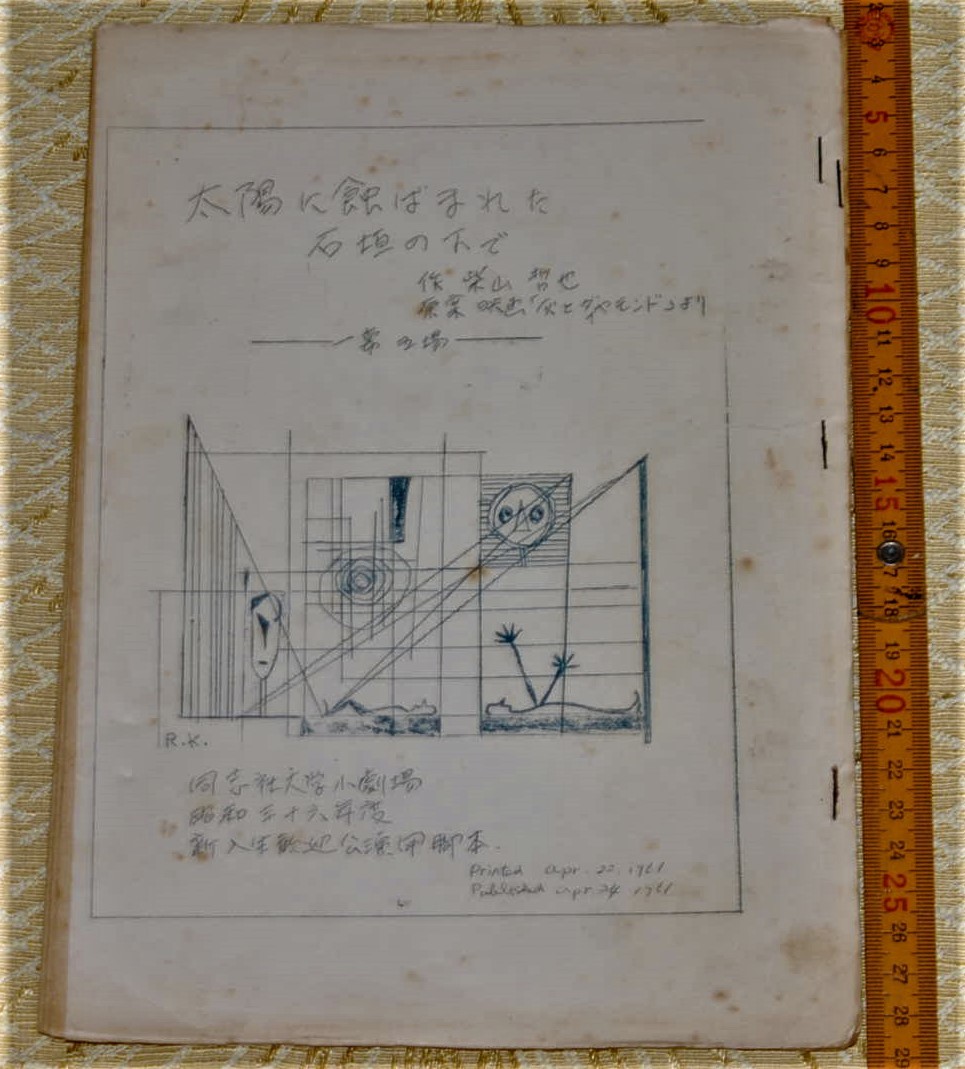 太陽に蝕ばまれた
石垣の下で
作 柴山 哲也
原案 映画「灰とダイヤモンド」より
一幕五場
R.K.
同志社大学小劇場
昭和三十六年度
新入生歓迎公演用脚本.
Printed Apr. 22. 1961
Published Apr. 24 1961
3
4
5
6
7
8
9
10
11
12
13
14
15
16
17
18
19
20
21
22
23
24
25
26
27
28
29